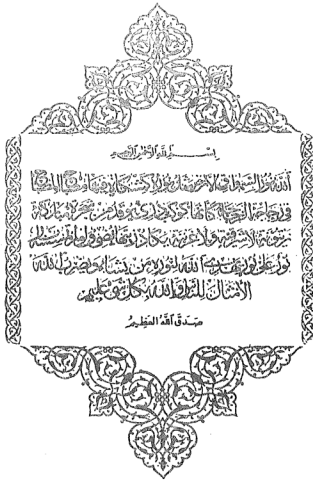 بسم الله الرحمن الرحيم
الله نور السموات والأرض مثل نوره كمشكاة فيها مصباح المصباح
في زجاجة الزجاجة كأنها كوكب دري يوقد من شجرة مباركة
زيتونة لا شرقية ولا غربية يكاد زيتها يضيء ولو لم تمسسه نار
نور على نور يهدي الله لنوره من يشاء ويضرب الله
الأمثال للناس والله بكل شيء عليم
صدق الله العظيم